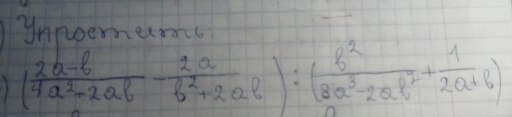 ) Упростить
) (\frac{2a-b}{4a^2+2ab} - \frac{2a}{b^2+2ab}) : (\frac{b^2}{8a^3-2ab^2} + \frac{1}{2a+b})